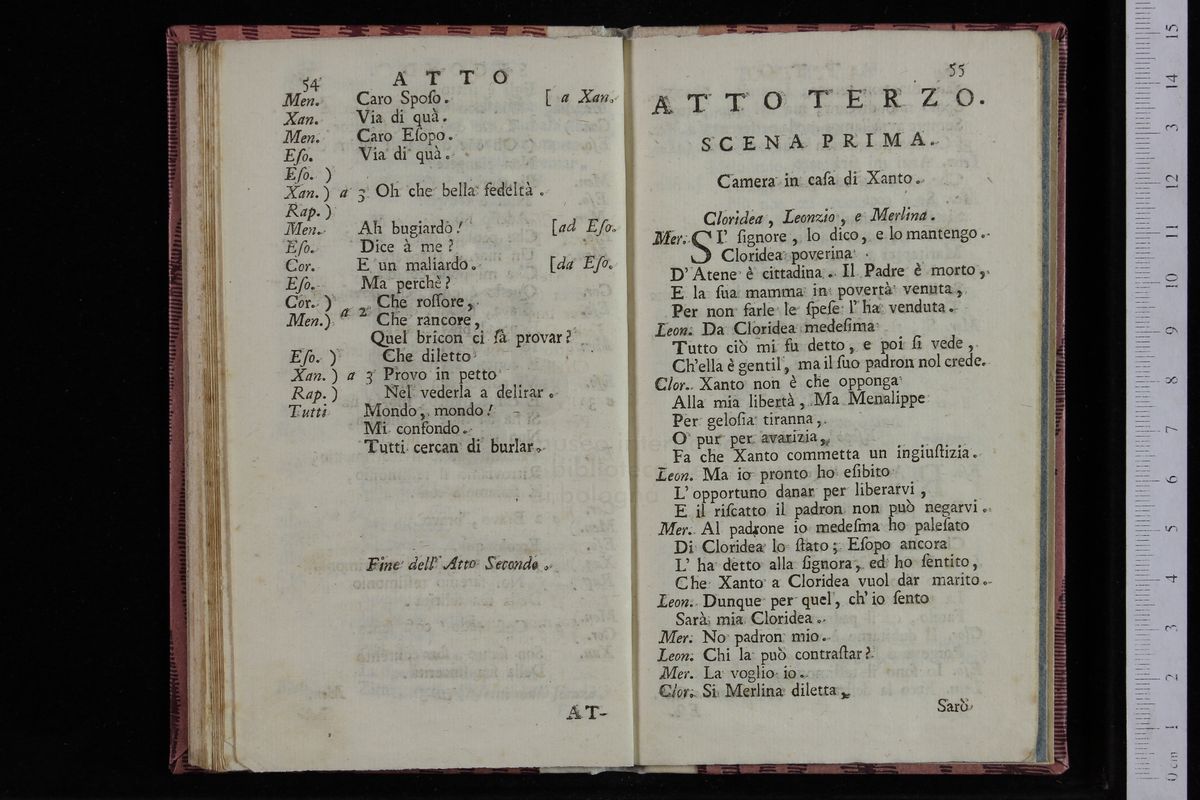 54 ATTO
Men. Caro Spoſo. [ a Xan.
Xan. Via di quà.
Men. Caro Eſopo.
Eſo. Via di quà.
Eſo. )
Xan. ) a 3 Oh che bella fedeltà.
Rap. )
Men. Ah bugiardo! [ad Eſo.
Eſo. Dice à me?
Cor. E un maliardo. [da Eſo.
Eſo. Ma perchè?
Cor. ) a 2 Che roſſore,
Men. ) Che rancore,
Quel bricon ci fà provar?
Eſo. ) Che diletto
Xan. ) a 3 Provo in petto
Rap. ) Nel vederla a delirar.
Tutti Mondo, mondo!
Mi confondo.
Tutti cercan di burlar.
Fine dell' Atto Secondo.
AT-
55
ATTO TERZO.
SCENA PRIMA.
Camera in caſa di Xanto.
Cloridea, Leonzio, e Merlina.
Mer. SI' ſignore, lo dico, e lo mantengo.
Cloridea poverina
D'Atene è cittadina. Il Padre è morto,
E la ſua mamma in povertà venuta,
Per non farle le ſpeſe l' ha venduta.
Leon. Da Cloridea medeſima
Tutto ciò mi fu detto, e poi ſi vede,
Ch'ella è gentil, ma il ſuo padron nol crede.
Clor. Xanto non è che opponga
Alla mia libertà, Ma Menalippe
Per geloſia tiranna,
O pur per avarizia,
Fa che Xanto commetta un ingiuſtizia.
Leon. Ma io pronto ho eſibito
L' opportuno danar per liberarvi,
E il riſcatto il padron non può negarvi.
Mer. Al padrone io medeſma ho paleſato
Di Cloridea lo ſtato; Eſopo ancora
L' ha detto alla ſignora, ed ho ſentito,
Che Xanto a Cloridea vuol dar marito.
Leon. Dunque per quel, ch' io ſento
Sarà mia Cloridea.
Mer. No padron mio.
Leon. Chi la può contraſtar?
Mer. La voglio io.
Clor. Si Merlina diletta,
Sarò